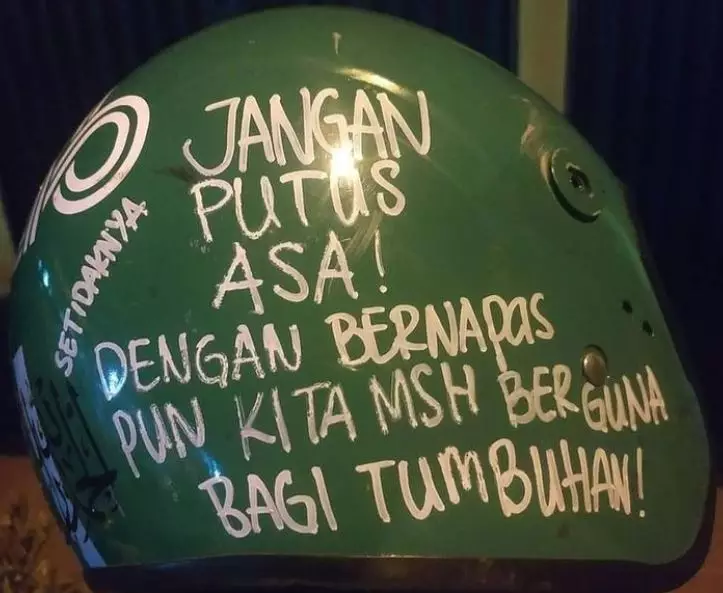 JANGAN
PUTUS
ASA!
SETIDAKNYA
DENGAN BERNAPAS
PUN KITA MSH BERGUNA
BAGI TUMBUHAN!